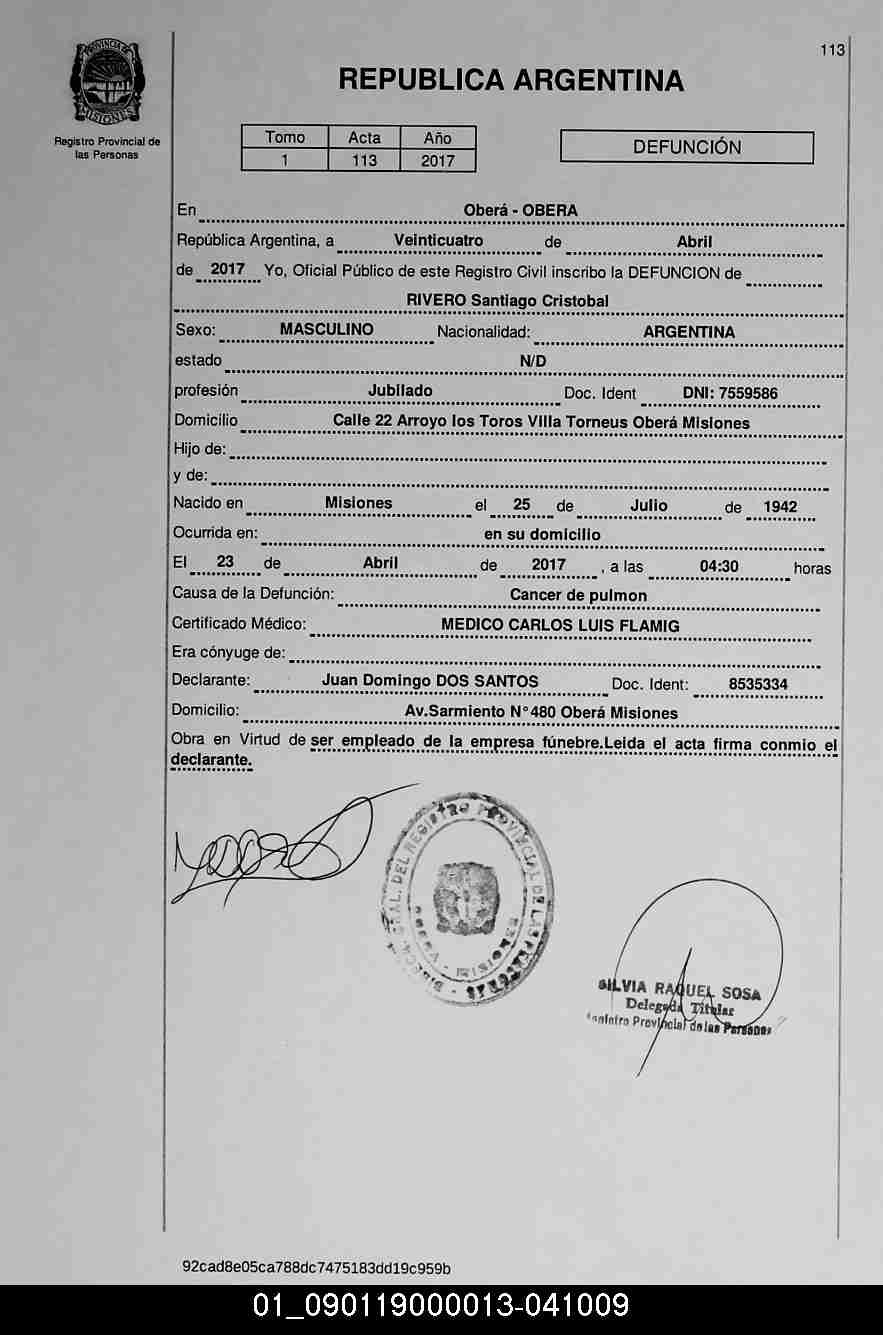 113
PROVINCIA DE
MISIONES
Registro Provincial de
las Personas
REPUBLICA ARGENTINA
Tomo Acta Año
1 113 2017
DEFUNCIÓN
En Oberá - OBERA
República Argentina, a Veinticuatro de Abril
de 2017 Yo, Oficial Público de este Registro Civil inscribo la DEFUNCION de
RIVERO Santiago Cristobal
Sexo: MASCULINO Nacionalidad: ARGENTINA
estado N/D
profesión Jubilado Doc. Ident DNI: 7559586
Domicilio Calle 22 Arroyo los Toros Villa Torneus Oberá Misiones
Hijo de:
y de:
Nacido en Misiones el 25 de Julio de 1942
Ocurrida en: en su domicilio
El 23 de Abril de 2017 , a las 04:30 horas
Causa de la Defunción: Cancer de pulmon
Certificado Médico: MEDICO CARLOS LUIS FLAMIG
Era cónyuge de:
Declarante: Juan Domingo DOS SANTOS Doc. Ident: 8535334
Domicilio: Av.Sarmiento N°480 Oberá Misiones
Obra en Virtud de ser empleado de la empresa fúnebre.Leida el acta firma conmio el
declarante.
GRAL. DEL REGISTRO PROVINCIAL DE LAS PERSONAS
SILVIA RAQUEL SOSA
Delegada Titular
Provincial de las Personas
92cad8e05ca788dc7475183dd19c959b
01_090119000013-041009